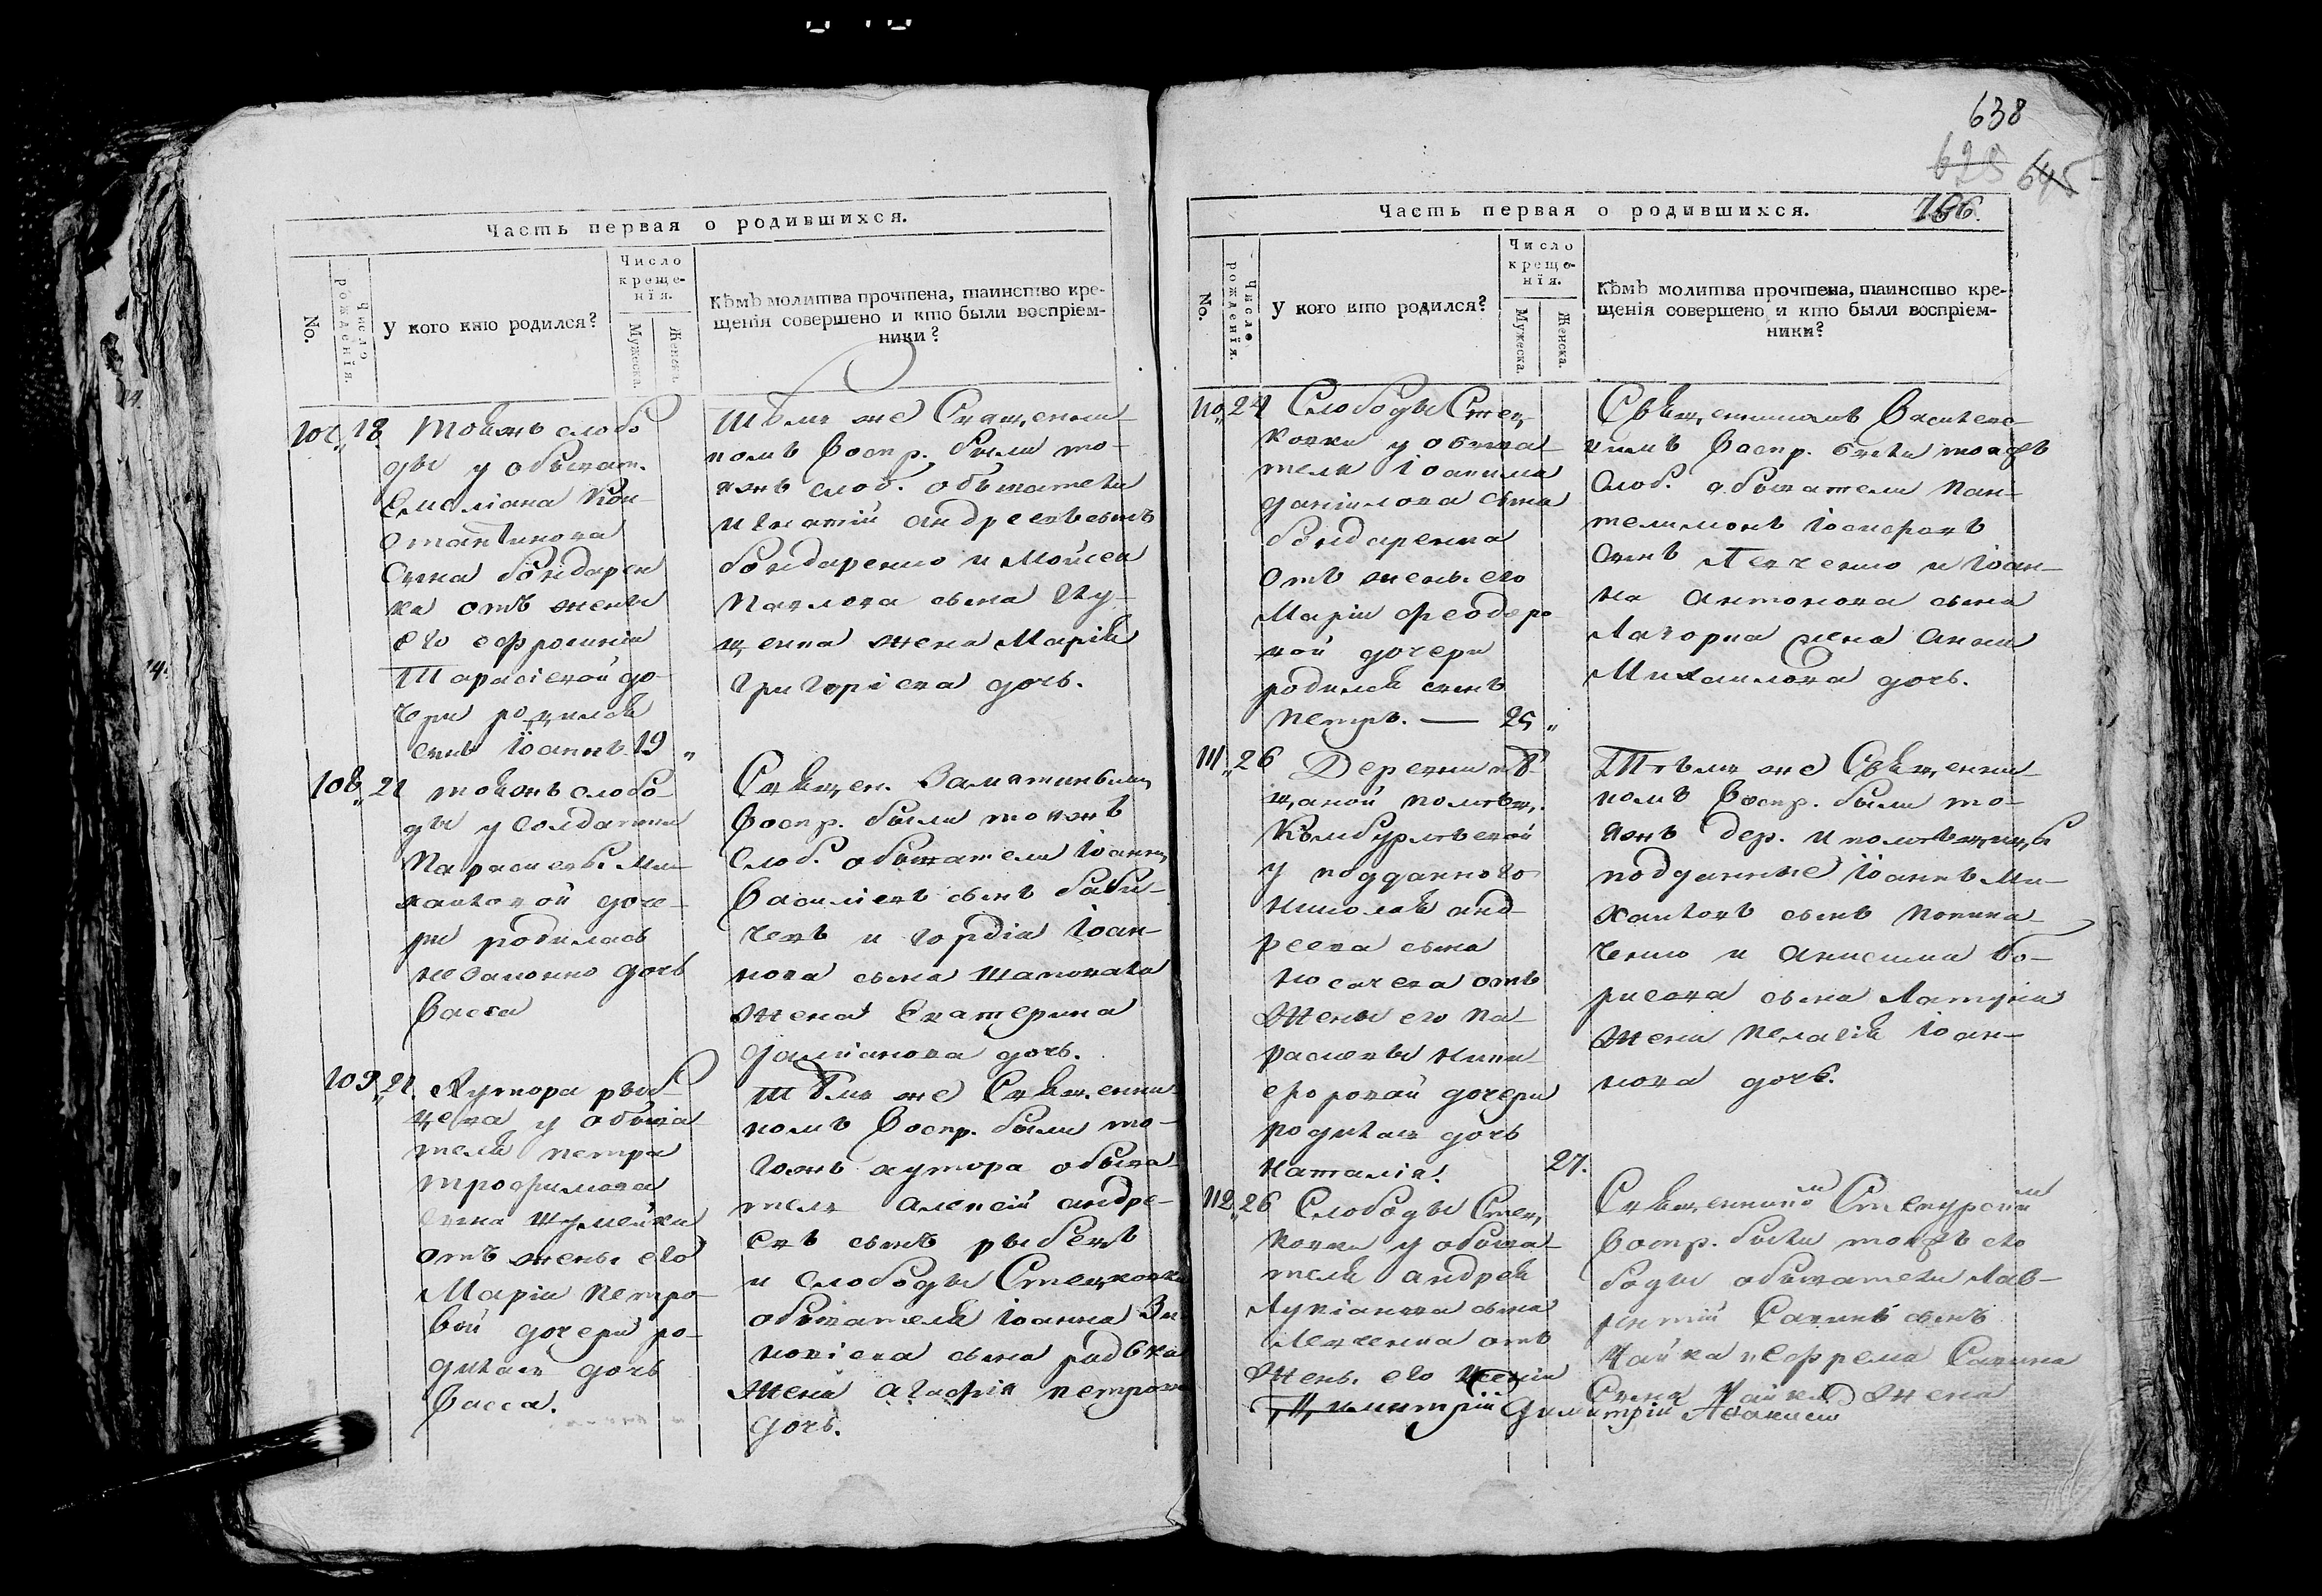 638
625 645
Часть первая о родившихся.
No.
Число рожденія.
У кого кто родился?
Число крещенія.
Мужеска.
Женска.
Кѣмъ молитва прочтена, таинство кре-
щенія совершено и кто были воспріем-
ники?
107 18 тояжъ слобо
ды у обыват.
Емеліана Кон
стантинова
сына бондарен
ка отъ жены
его ефросиніи
Тарасіевой до
чери родился
сынъ Іоаннъ 19 „
Тѣмъ же Священни
комъ Воспр. были то
яжъ слоб. обыватели
Игнатій андреевъ сынъ
бондаренко и Мойсея
Павлова сына
жена Марія
григоріева дочь.
108 21 тояжъ слобо
ды у солдатки
Парасковьи Ми
хайловой доче
ри родилась
незаконно дочь
Васса
Священ. Замятинымъ
Воспр. были тояжъ
Слоб. обыватели Іоаннъ
Василіевъ сынъ баби
чевъ и гордія Іоан
нова сына Шаповала
Жена Екатерина
даміанова дочь.
109 21. Хутора рыб
цева у обыва
теля петра
трофимова
сына Шумейки
отъ жены его
Маріи Петро
вой дочери ро
дилась дочь
Васса.
Тѣмъ же Священни
комъ Воспр. были то
гожъ хутора обыва
тель алексій андре
евъ сынъ рыбевъ
и Слободы Стецковки
обывателя Іоанна Зи
новіева сына
Жена агафія петрова
дочь.
Часть первая о родившихся. 766.
No.
Число рожденія.
У кого кто родился?
Число крещенія.
Мужеска.
Женска.
Кѣмъ молитва прочтена, таинство кре-
щенія совершено и кто были воспріем-
ники?
110 24 Слободы Стец
ковки у обыва
теля Іоакима
даніилова сына
бондаренка
Отъ жены его
Маріи феодоро
вой дочери
родился сынъ
Петръ. — 25 „
Священникомъ
Воспр. были тояжъ
Слоб. обыватели Пан
телимонъ Іосифовъ
Сынъ Левченко и Іоан
на антонова сына
Лагорна жена анна
Михаилова дочь.
111 26 Деревни
помѣщ.
у подданного
Николая анд
реева сына
Носачева отъ
Жены его Па
расковьи Ники
форовой дочери
родилась дочь
Наталія. 27.
Тѣмъ же Священни
комъ Воспр. были то
яжъ дер. и помѣщицы
подданные Іоаннъ Ми
хаиловъ сынъ
и анисима Бо
рисова сына
Жена Пелагія Іоан
нова дочь.
112 26 Слободы Стец
ковки у обыва
теля андрея
Лукіанова сына
Левченка отъ
Жены его
Димитрій Аѳанасіи
Священникомъ
Воспр. были тояжъ сло
боды обыватели Лав
рентій Савинъ сынъ
Чайка и Ефрема Савина
Сына Чайки жена